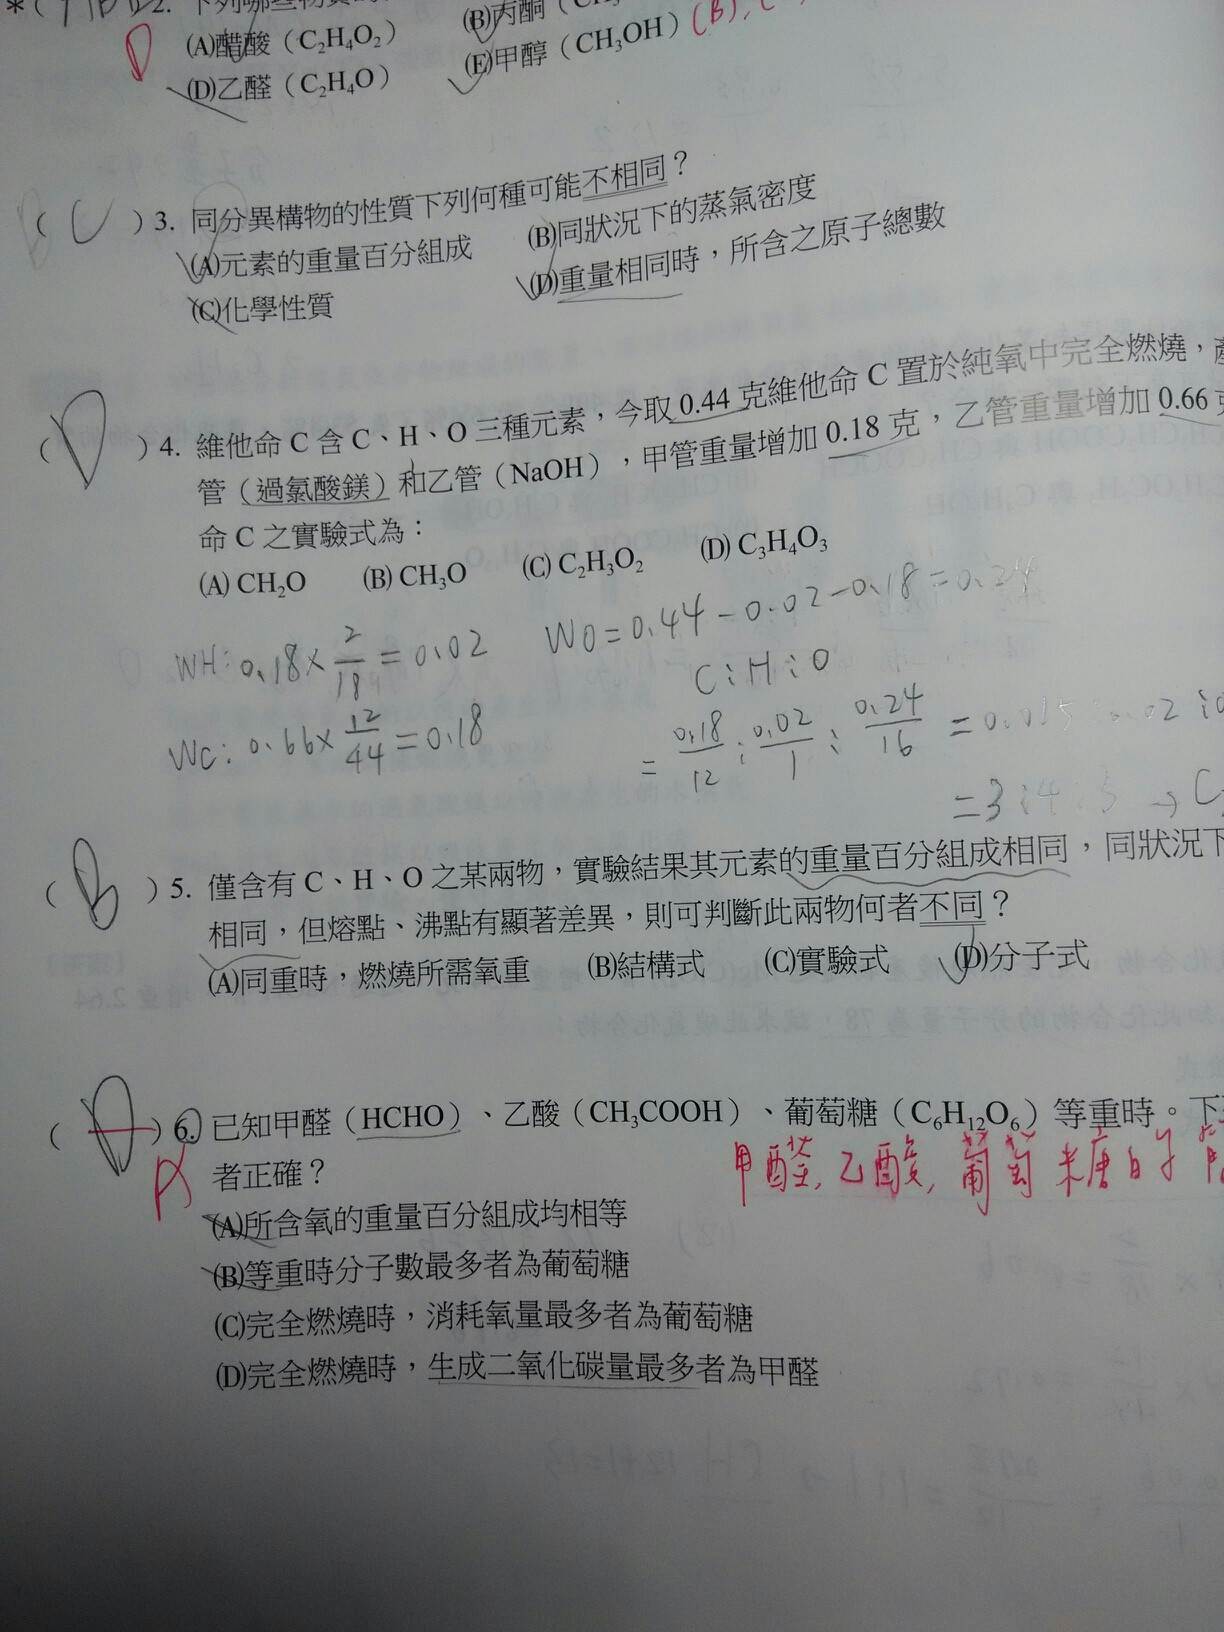 2. 下列哪些物質的
(A)醋酸（C₂H₄O₂） (B)丙酮（CH₃
(D)乙醛（C₂H₄O） (E)甲醇（CH₃OH） (B), (
D
( C ) 3. 同分異構物的性質下列何種可能不相同？
(A)元素的重量百分組成 (B)同狀況下的蒸氣密度
(C)化學性質 (D)重量相同時，所含之原子總數
( D ) 4. 維他命 C 含 C、H、O 三種元素，今取 0.44 克維他命 C 置於純氧中完全燃燒，產
管（過氯酸鎂）和乙管（NaOH），甲管重量增加 0.18 克，乙管重量增加 0.66 克
命 C 之實驗式為：
(A) CH₂O (B) CH₃O (C) C₂H₃O₂ (D) C₃H₄O₃
WH: 0.18 × 2/18 = 0.02 WO = 0.44 - 0.02 - 0.18 = 0.24
C : H : O
Wc: 0.66 × 12/44 = 0.18 = 0.18/12 : 0.02/1 : 0.24/16 = 0.015 : 0.02 : 0
= 3 : 4 : 3 → C
( B ) 5. 僅含有 C、H、O 之某兩物，實驗結果其元素的重量百分組成相同，同狀況下
相同，但熔點、沸點有顯著差異，則可判斷此兩物何者不同？
(A)同重時，燃燒所需氧重 (B)結構式 (C)實驗式 (D)分子式
( D ) 6. 已知甲醛（HCHO）、乙酸（CH₃COOH）、葡萄糖（C₆H₁₂O₆）等重時。下
A 者正確？ 甲醛, 乙酸, 葡萄糖的
(A)所含氧的重量百分組成均相等
(B)等重時分子數最多者為葡萄糖
(C)完全燃燒時，消耗氧量最多者為葡萄糖
(D)完全燃燒時，生成二氧化碳量最多者為甲醛